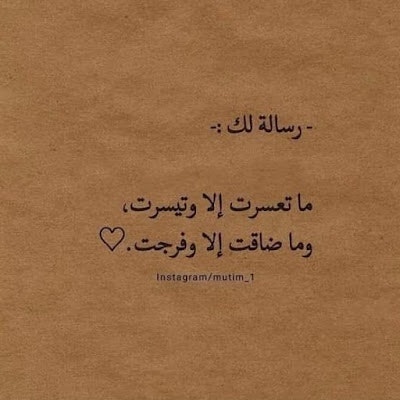 - رسالة لك :-
ما تعسرت إلا وتيسرت،
وما ضاقت إلا وفرجت.♡
Instagram/mutim_1